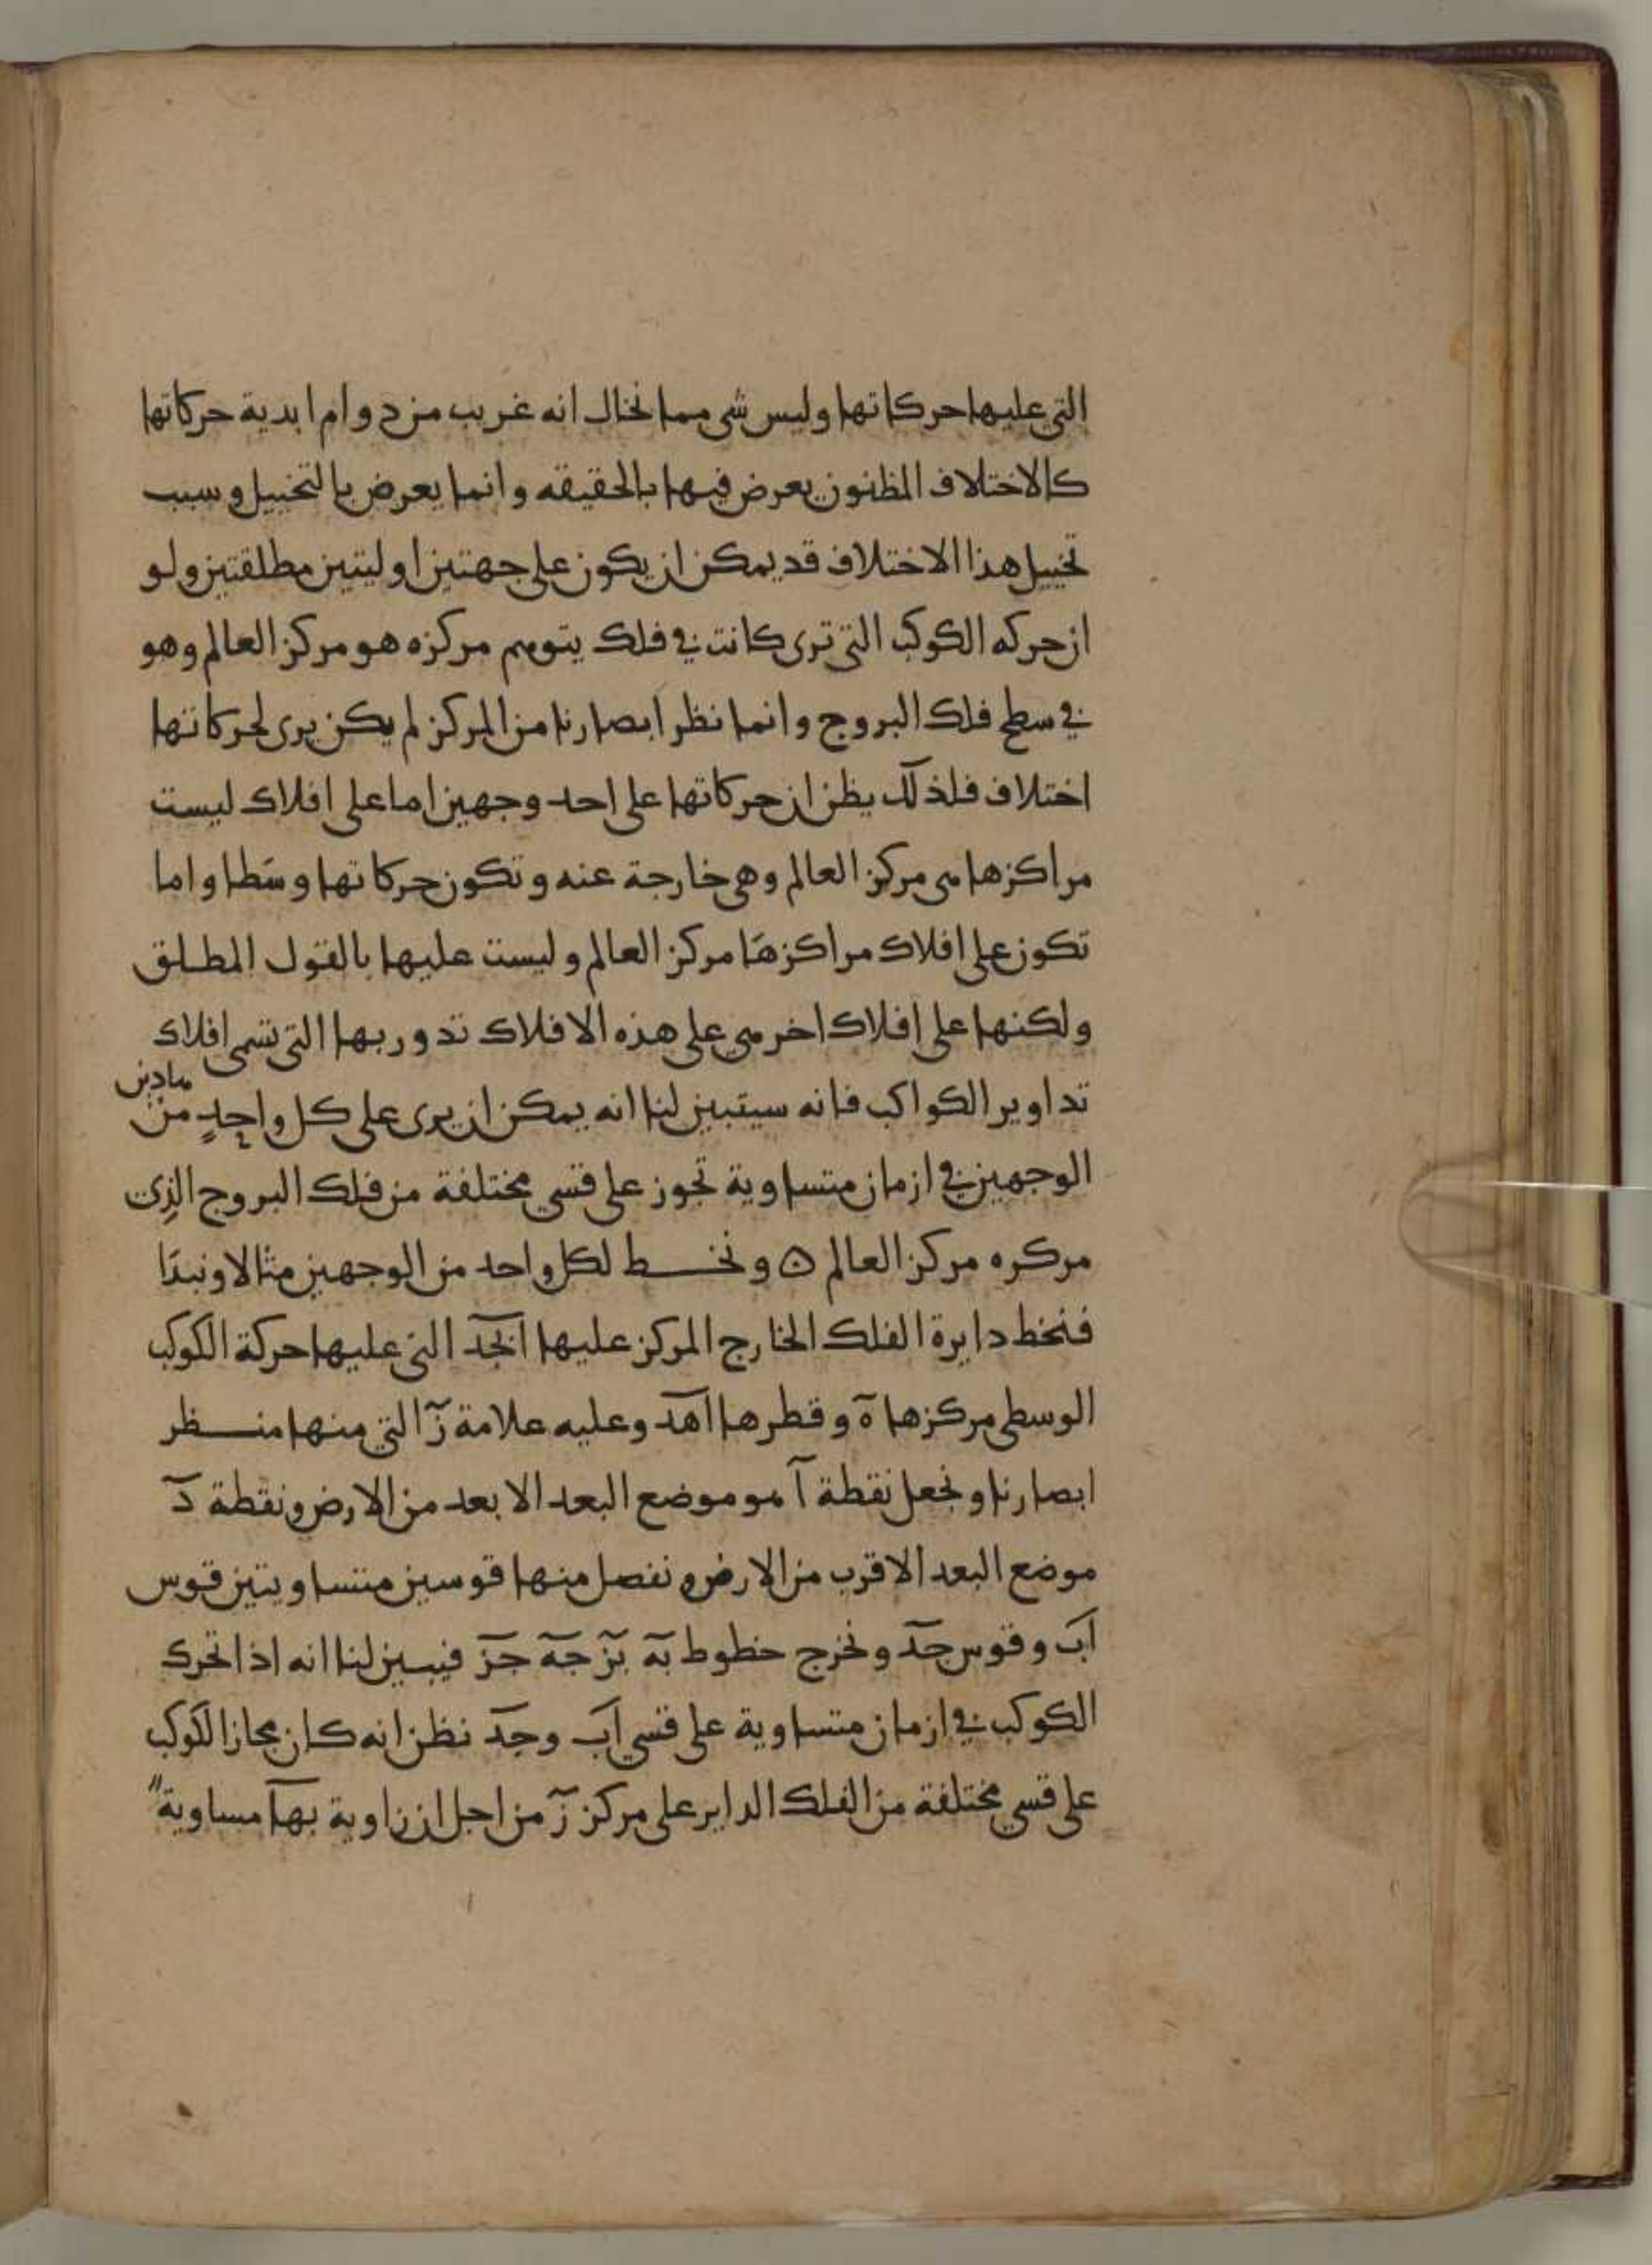 التي عليها حركاتها وليس شى مما نخال انه غريب من دوام ابدية حركاتها
كالاختلاف المظنون يعرض فيها بالحقيقه وانما يعرض بالتخييل وسبب
تخييل هذا الاختلاف قد يمكن ان يكون على جهتين اوليتين مطلقتين ولو
ان حركه الكوكب التي ترى كانت في فلك يتوهم مركزه هو مركز العالم وهو
في سطح فلك البروج وانما نظر ابصارنا من المركز لم يكن يرى لحركاتها
اختلاف فلذلك يظن ان حركاتها على احد وجهين اما على افلاك ليست
مراكزها هى مركز العالم وهى خارجة عنه وتكون حركاتها وسَطا واما
تكون على افلاك مراكزهَا مركز العالم وليست عليها بالقول المطلق
ولكنها على افلاك اخر هى على هذه الافلاك تدور بها التي تسمى افلاك
تداوير الكواكب فانه سيتبين لنا انه يمكن ان يرى على كل واحدٍ من هاذين
الوجهين في ازمان متساوية تجوز على قسي مختلفة من فلك البروج الذِى
مركزه مركز العالم ۞ ونخط لكل واحد من الوجهين مثالا ونبدَا
فنخط دايرة الفلك الخارج المركز عليها ابجد التي عليها حركة الكوكب
الوسطى مركزها ه وقطرها اهد وعليه علامة ز التي منها منظر
ابصارنا ونجعل نقطة ا هو موضع البعد الابعد من الارض ونقطة د
موضع البعد الاقرب من الارض ونفصل منها قوسين متساويتين قوس
اب وقوس جد ونخرج خطوط به بز جه جز فيبين لنا انه اذا تحرك
الكوكب في ازمان متساوية على قسي اب وجد نظن انه كان مجاز الكوكب
على قسي مختلفة من الفلك الداير على مركز ز من اجل ان زاوية بها مساوية